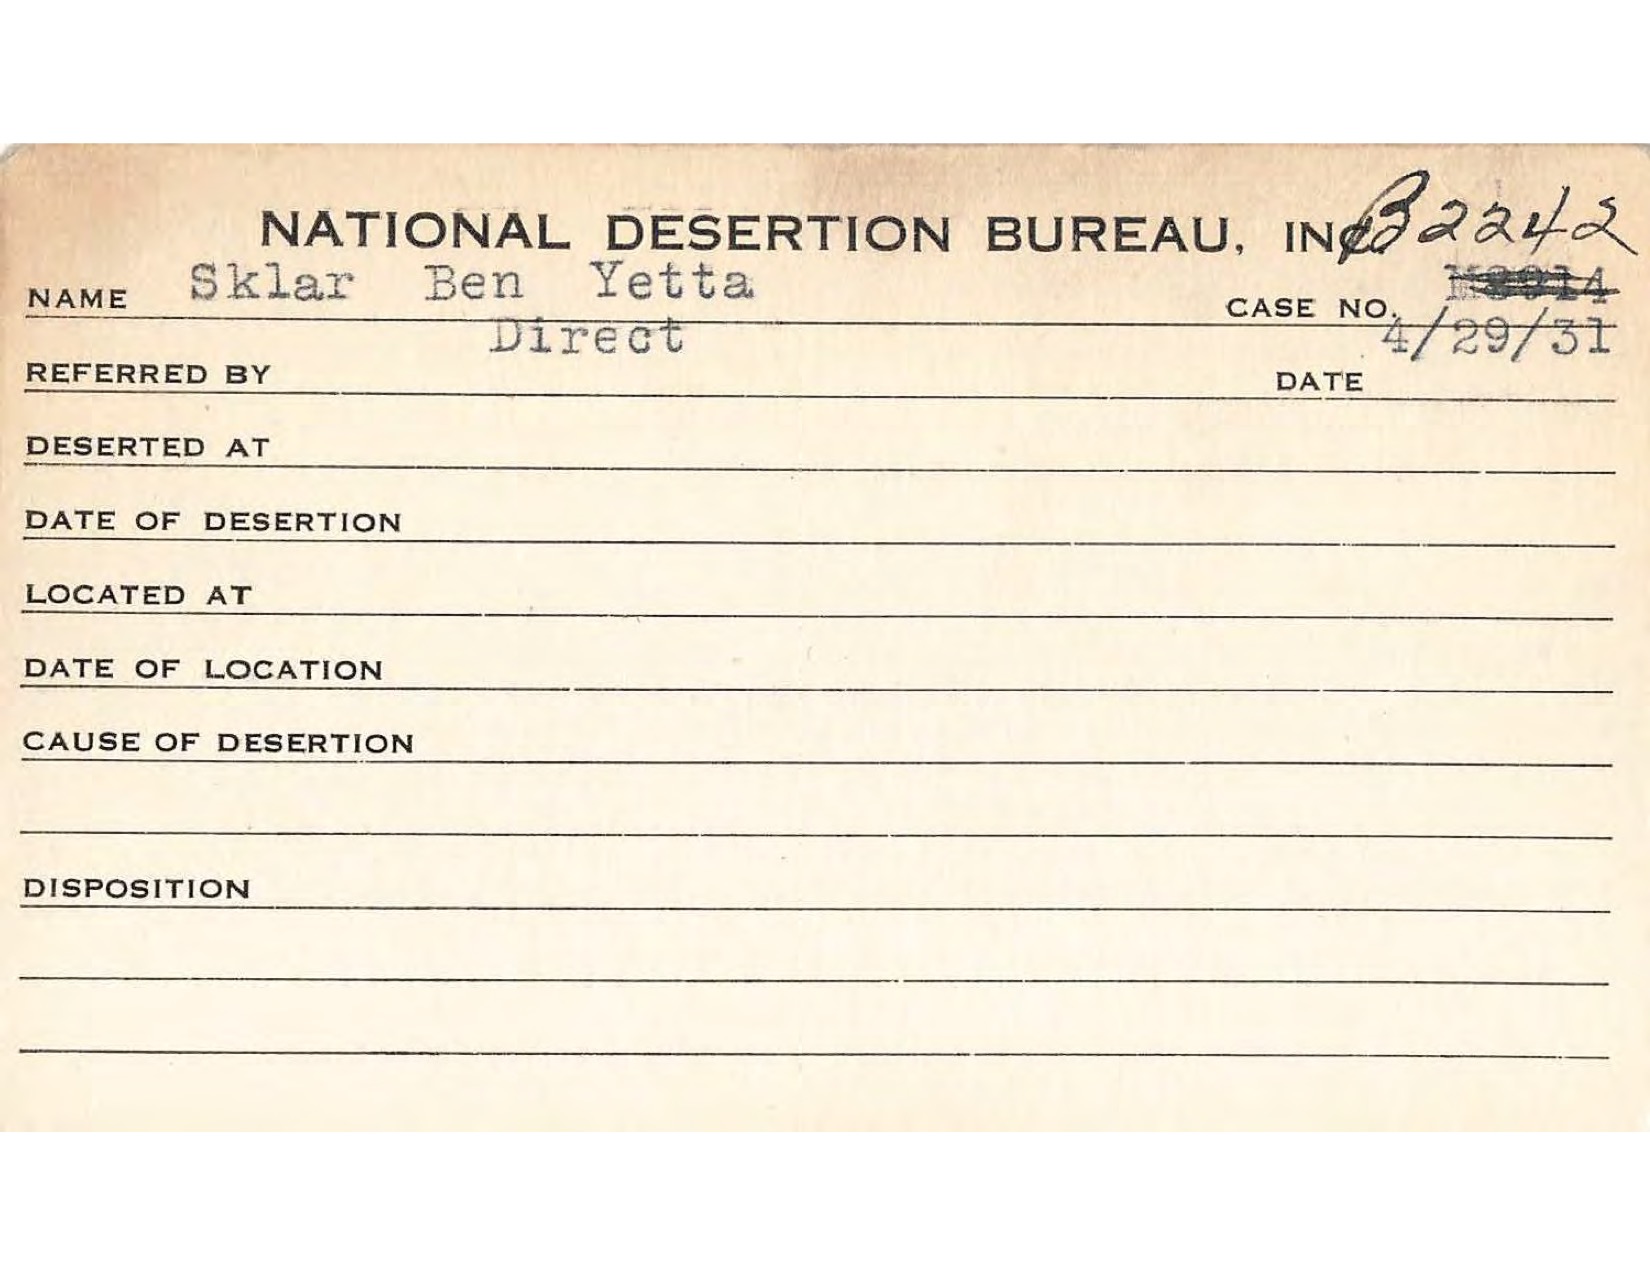 NATIONAL DESERTION BUREAU, INC. B2242
NAME Sklar Ben Yetta CASE NO.
REFERRED BY Direct DATE 4/29/31
DESERTED AT
DATE OF DESERTION
LOCATED AT
DATE OF LOCATION
CAUSE OF DESERTION
DISPOSITION